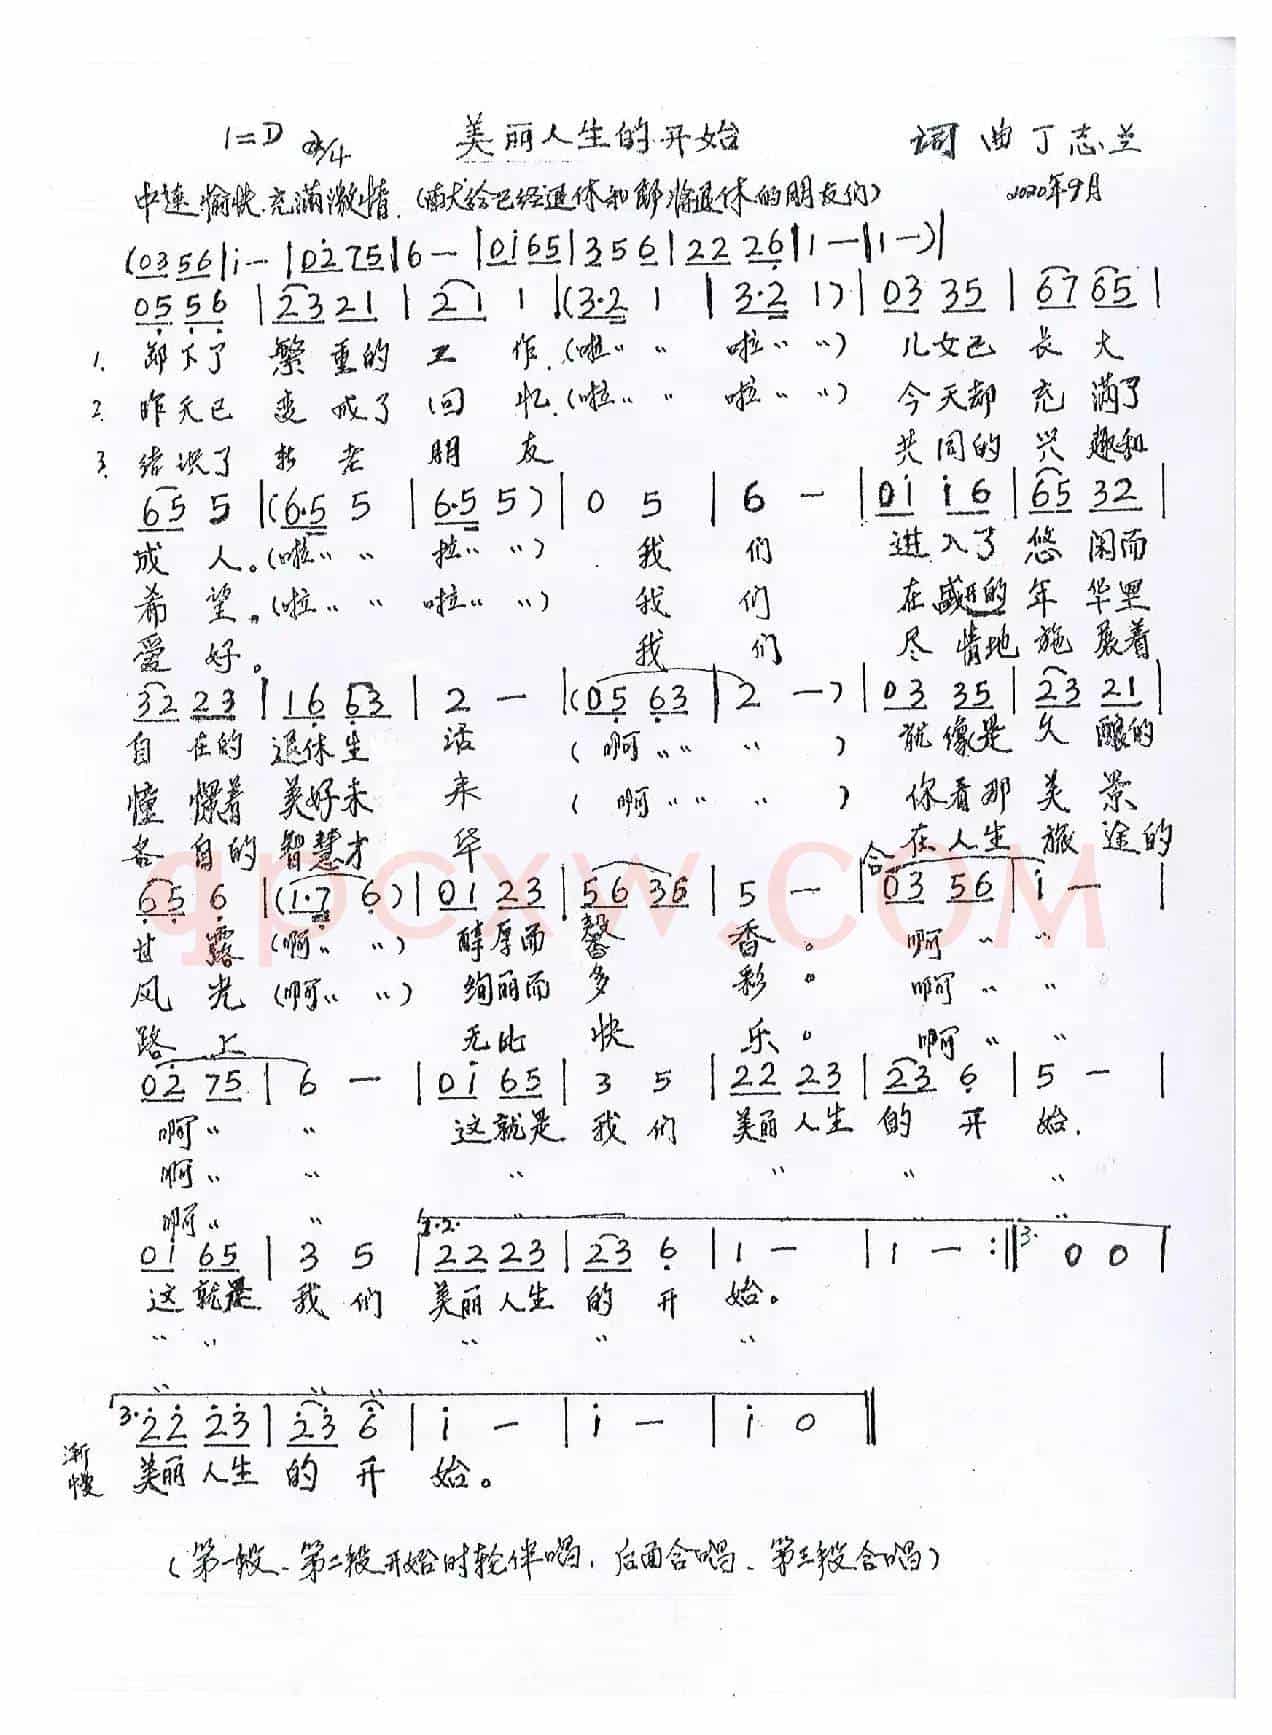 1=D 2/4 美丽人生的开始 词曲 丁志兰
中速 愉快.充满激情.(献给已经退休和即将退休的朋友们) 2020年9月
(0356|i-|0275|6-|0i65|356|2226|1-|1-)|
05 56 | 23 21 | 21 1 |(3·2 1 | 3·2 1)| 03 35 | 67 65 |
1. 卸下了 繁重的 工 作.(啦〃 〃 啦〃 〃) 儿女已 长 大
2. 昨天已 变成了 回 忆.(啦〃 〃 啦〃 〃) 今天却 充 满了
3. 结识了 新 老 朋 友 共同的 兴 趣和
65 5 |(6·5 5 | 6·5 5)| 0 5 | 6 - | 0i i6 | 65 32 |
成 人。(啦〃 〃 拉〃 〃) 我 们 进入了 悠 闲而
希 望。(啦〃 〃 啦〃 〃) 我 们 在盛开的 年 华里
爱 好。 我 们 尽情地 施 展着
32 23 | 16 63 | 2 - |(05 63 | 2 -)| 03 35 | 23 21 |
自 在的 退休生 活 (啊〃〃 〃) 就像是 久 酿的
憧 憬着 美好未 来 (啊〃〃 〃) 你看那 美 景
各 自的 智慧才 华 在人生 旅 途的
65 6 |(1·7 6)| 01 23 | 56 36 | 5 - | 合 03 56 | i - |
甘 露 (啊〃 〃) 醇厚而 馨 香。 啊〃 〃
风 光 (啊〃 〃) 绚丽而 多 彩。 啊〃 〃
路 上 无比 快 乐。 啊〃 〃
02 75 | 6 - | 0i 65 | 3 5 | 22 23 | 23 6 | 5 - |
啊〃 〃 这就是 我们 美丽人生 的 开 始.
啊〃 〃 〃 〃 〃 〃
啊〃 〃 〃 〃
0i 65 | 3 5 | 1.2. 22 23 | 23 6 | 1 - | 1 - :‖ 3. 0 0 |
这就是 我们 美丽人生 的 开 始。
〃 〃 〃 〃 〃
〃 〃 〃
3. 22 23 | 23 6 | i - | i - | i 0 ‖
渐慢 美丽人生 的 开 始。
(第一段、第二段开始时轮伴唱,后面合唱、第三段合唱)
qpcxw.COM